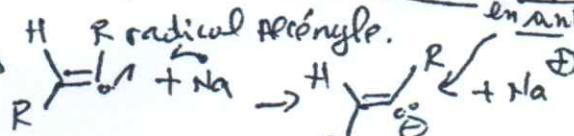 en an
H R radical Alcényle.
R + Na → H R ⊖ + Na ⊕